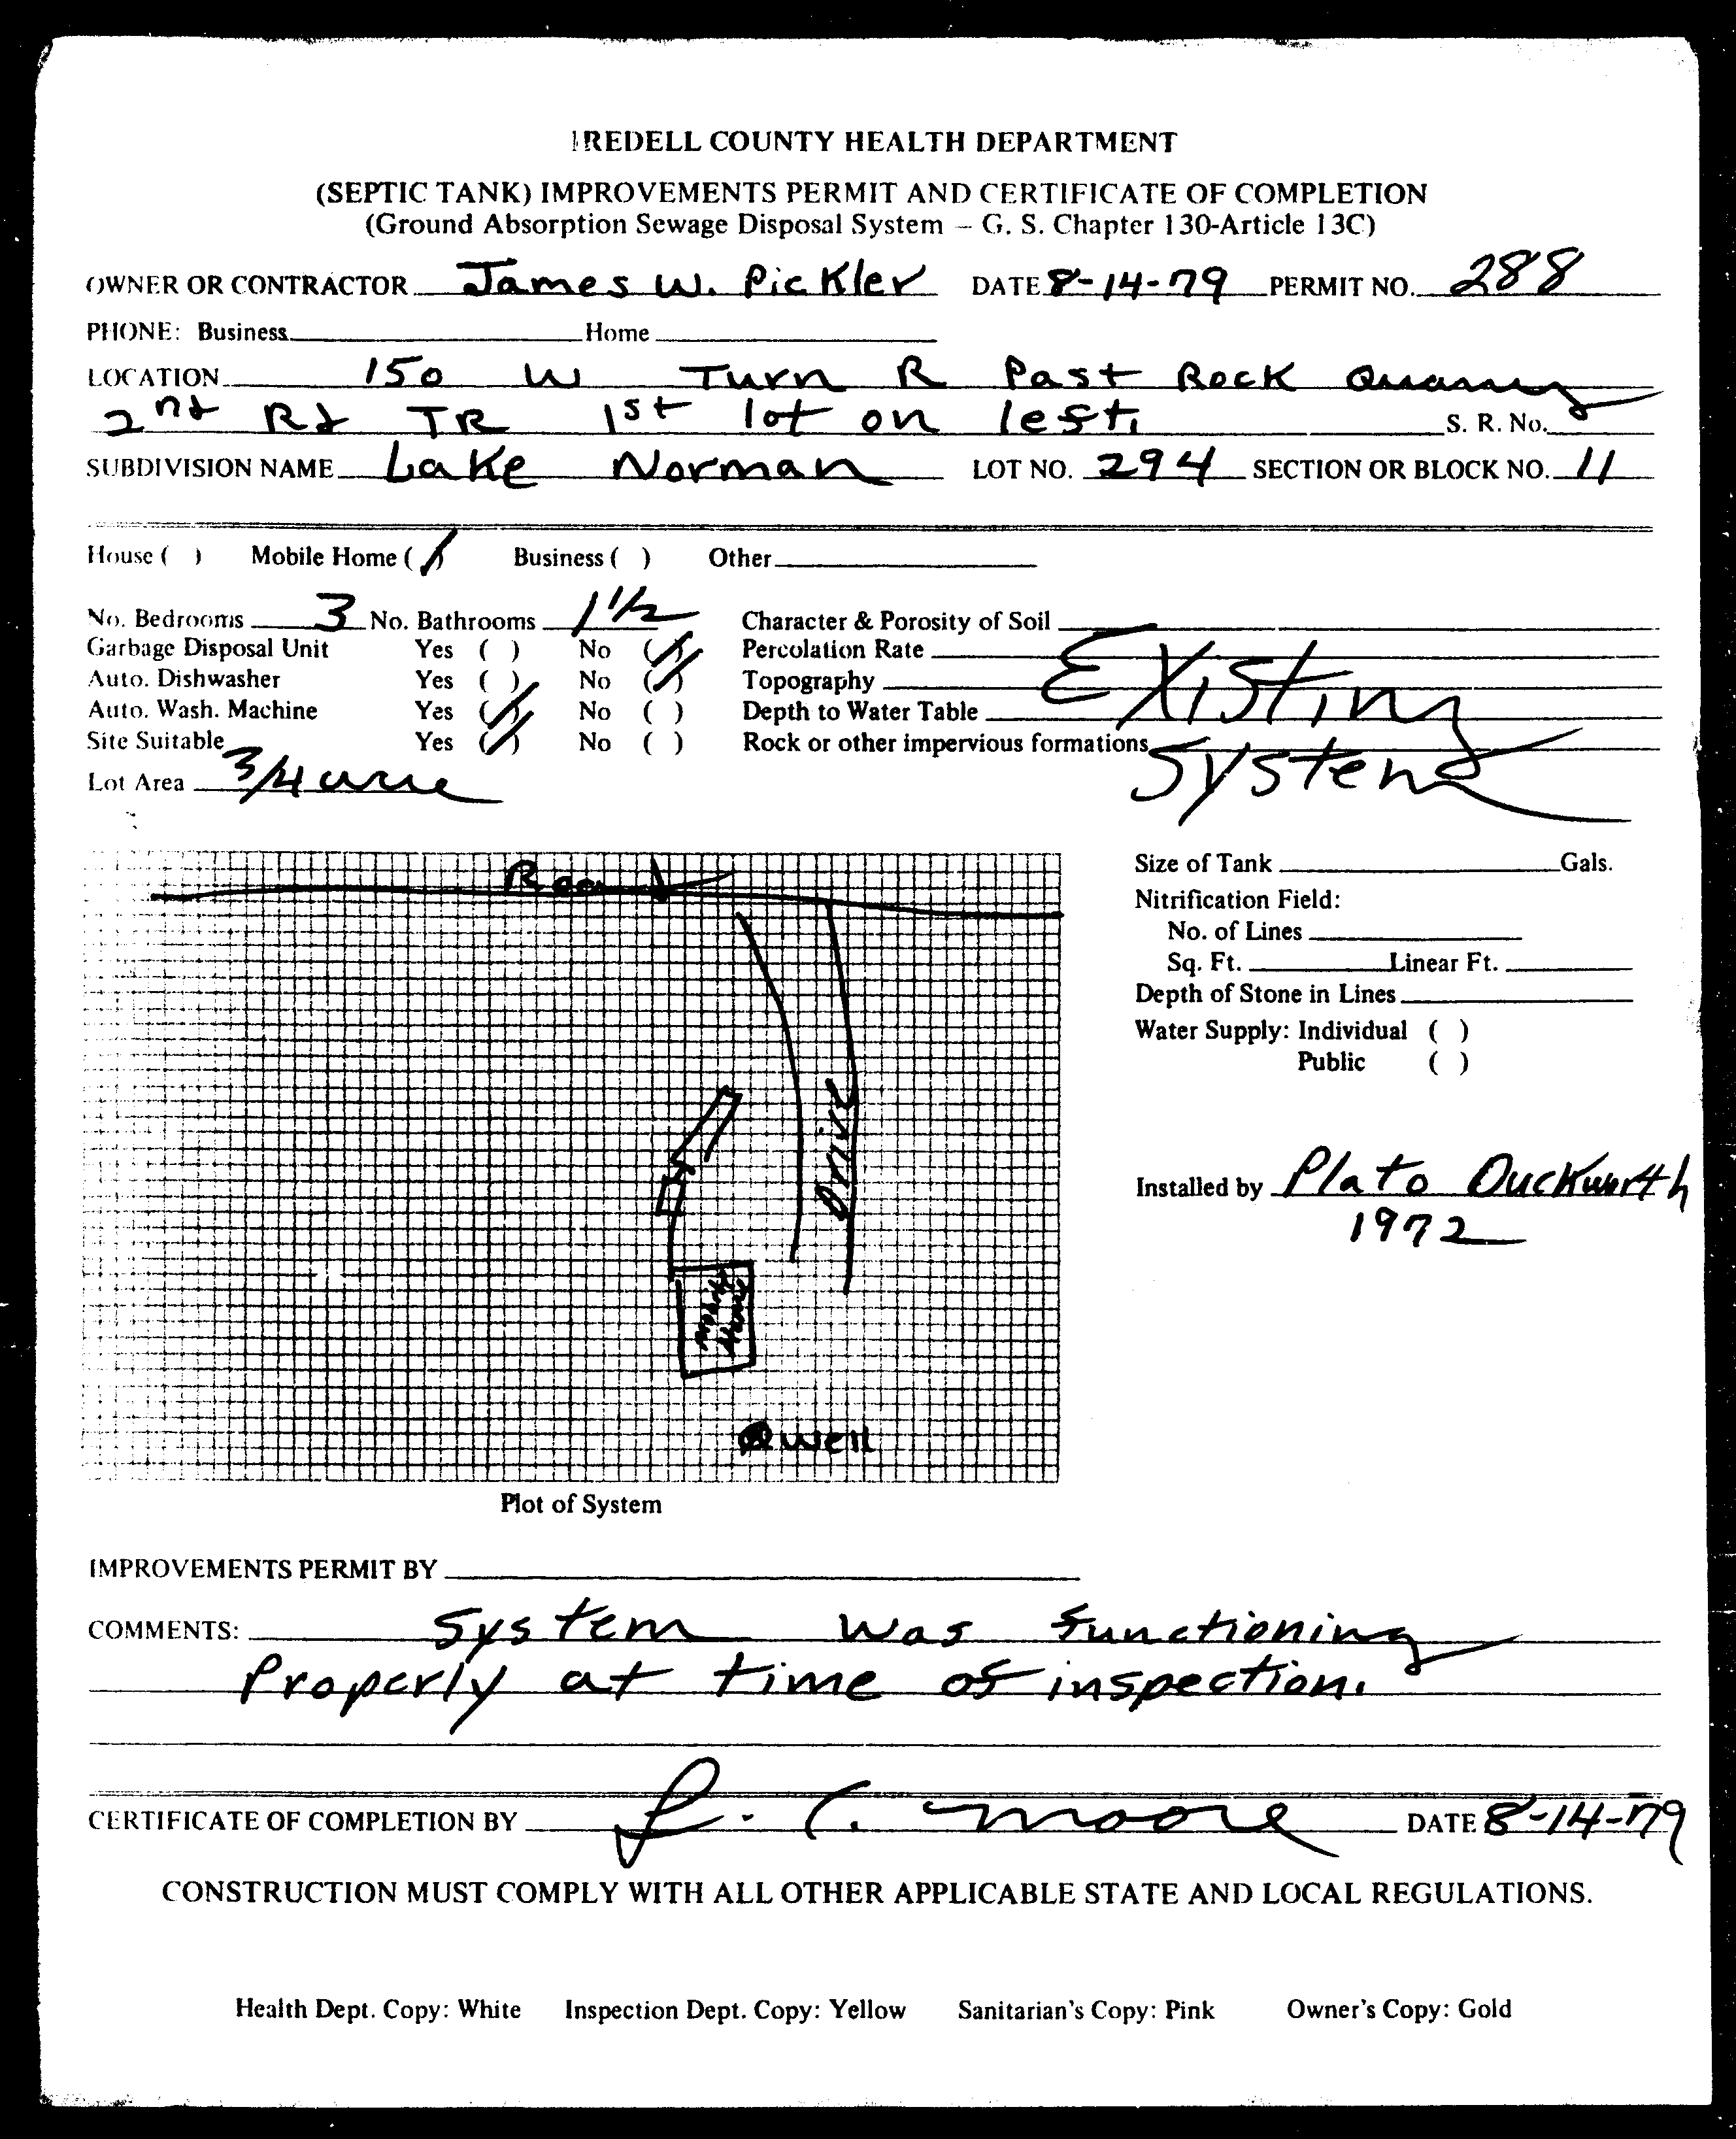 IREDELL COUNTY HEALTH DEPARTMENT
(SEPTIC TANK) IMPROVEMENTS PERMIT AND CERTIFICATE OF COMPLETION
(Ground Absorption Sewage Disposal System – G. S. Chapter 130-Article 13C)
OWNER OR CONTRACTOR James W. Pickler DATE 8-14-79 PERMIT NO. 288
PHONE: Business Home
LOCATION 150 W Turn R Past Rock Quarry
2nd Rd TR 1st lot on left. S. R. No.
SUBDIVISION NAME Lake Norman LOT NO. 294 SECTION OR BLOCK NO. 11
House ( ) Mobile Home (/) Business ( ) Other
No. Bedrooms 3 No. Bathrooms 1 1/2 Character & Porosity of Soil
Garbage Disposal Unit Yes ( ) No (/) Percolation Rate
Auto. Dishwasher Yes ( ) No (/) Topography Existing
Auto. Wash. Machine Yes (/) No ( ) Depth to Water Table
Site Suitable Yes (/) No ( ) Rock or other impervious formations System
Lot Area 3/4 acre
Road
Drive
Mobile Home
Well
Plot of System
Size of Tank Gals.
Nitrification Field:
No. of Lines
Sq. Ft. Linear Ft.
Depth of Stone in Lines
Water Supply: Individual ( )
Public ( )
Installed by Plato Duckworth
1972
IMPROVEMENTS PERMIT BY
COMMENTS: System was functioning
Properly at time of inspection.
CERTIFICATE OF COMPLETION BY L. C. Moore DATE 8-14-79
CONSTRUCTION MUST COMPLY WITH ALL OTHER APPLICABLE STATE AND LOCAL REGULATIONS.
Health Dept. Copy: White Inspection Dept. Copy: Yellow Sanitarian's Copy: Pink Owner's Copy: Gold